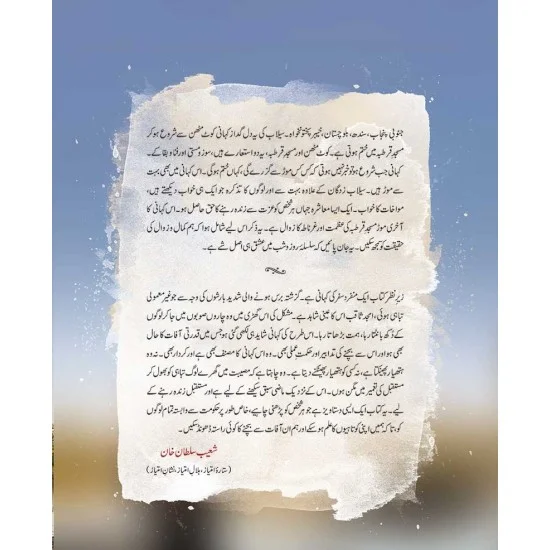 جنوبی پنجاب، سندھ، بلوچستان، خیبر پختونخواہ۔ سیلاب کی یہ دل گداز کہانی کوٹ مٹھن سے شروع ہو کر
مسجد قرطبہ میں ختم ہوتی ہے۔ کوٹ مٹھن اور مسجد قرطبہ، یہ دو استعارے ہیں، سوز و مستی اور فنا و بقا کے۔
کہانی جب شروع ہو تو خبر نہیں ہوتی کہ کس کس موڑ سے گزرے گی، کہاں ختم ہو گی۔ اس کہانی میں بھی بہت
سے موڑ ہیں۔ سیلاب زدگان کے علاوہ بہت سے اور لوگوں کا تذکرہ جو ایک ہی خواب دیکھتے ہیں،
مواخات کا خواب۔ ایک ایسا معاشرہ جہاں ہر شخص کو عزت سے زندہ رہنے کا حق حاصل ہو۔ اس کہانی کا
آخری موڑ مسجد قرطبہ کی عظمت اور غرناطہ کا زوال ہے۔ یہ ذکر اس لیے شامل ہوا کہ ہم کمال و زوال کی
حقیقت کو سمجھ سکیں۔ یہ جان پائیں کہ سلسلہ روز و شب میں عشق ہی اصل شے ہے۔
زیر نظر کتاب ایک منفرد سفر کی کہانی ہے۔ گزشتہ برس ہونے والی شدید بارشوں کی وجہ سے جو غیر معمولی
تباہی ہوئی، امجد ثاقب اس کا عینی شاہد ہے۔ مشکل کی اس گھڑی میں وہ چاروں صوبوں میں جا کر لوگوں
کے دُکھ بانٹتا رہا، ہمت بڑھاتا رہا۔ اس طرح کی کہانی شاید ہی لکھی گئی ہو جس میں قدرتی آفات کا حال
بھی ہو اور اس سے بچنے کی تدابیر اور حکمتِ عملی بھی۔ وہ اس کہانی کا مصنف بھی ہے اور کردار بھی۔ نہ وہ
ہتھیار پھینکتا ہے، نہ کسی کو ہتھیار پھینکنے دیتا ہے۔ وہ چاہتا ہے کہ مصیبت میں گھرے لوگ تباہی کو بھول کر
مستقبل کی تعمیر میں مگن ہوں۔ اس کے نزدیک ماضی سبق سیکھنے کے لیے ہے اور مستقبل زندہ رہنے کے
لیے۔ یہ کتاب ایک ایسی دستاویز ہے جو ہر شخص کو پڑھنی چاہیے، خاص طور پر حکومت سے وابستہ تمام لوگوں
کو، تاکہ ہمیں اپنی کوتاہیوں کا علم ہو سکے اور ہم ان آفات سے بچنے کا کوئی راستہ ڈھونڈ سکیں۔
شعیب سلطان خان
(ستارۂ امتیاز، ہلالِ امتیاز، نشانِ امتیاز)